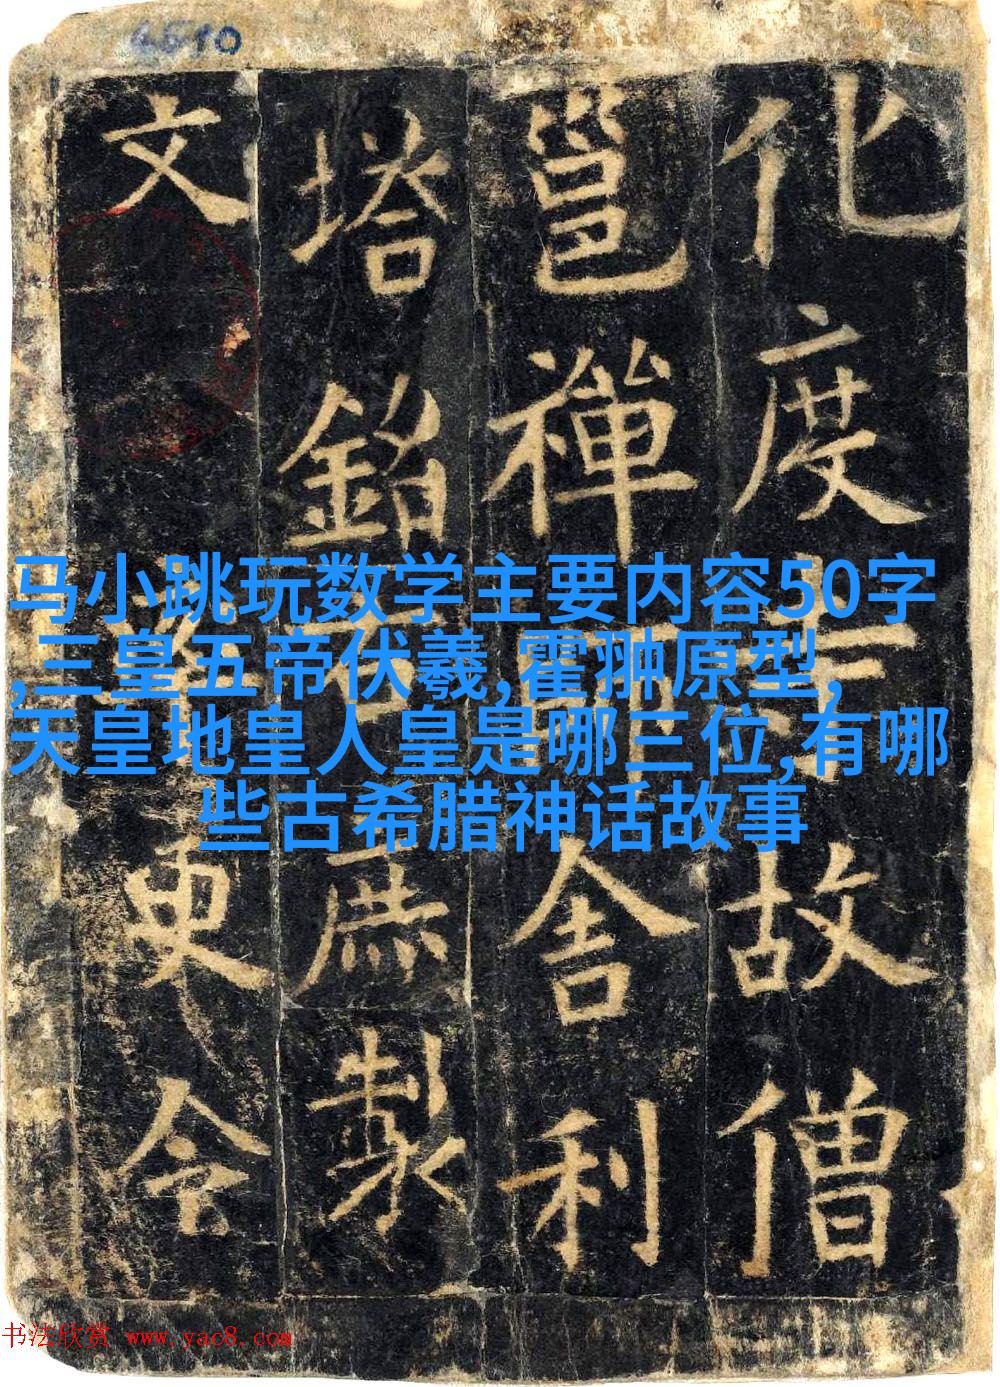 化度寺故僧
邕禪師舍利
塔銘右庶製
文率更令
马小跳玩数学主要内容50字
,三皇五帝伏羲,霍翀原型,
天皇地皇人皇是哪三位,有哪
些古希腊神话故事
书法欣赏 www.yac8.com